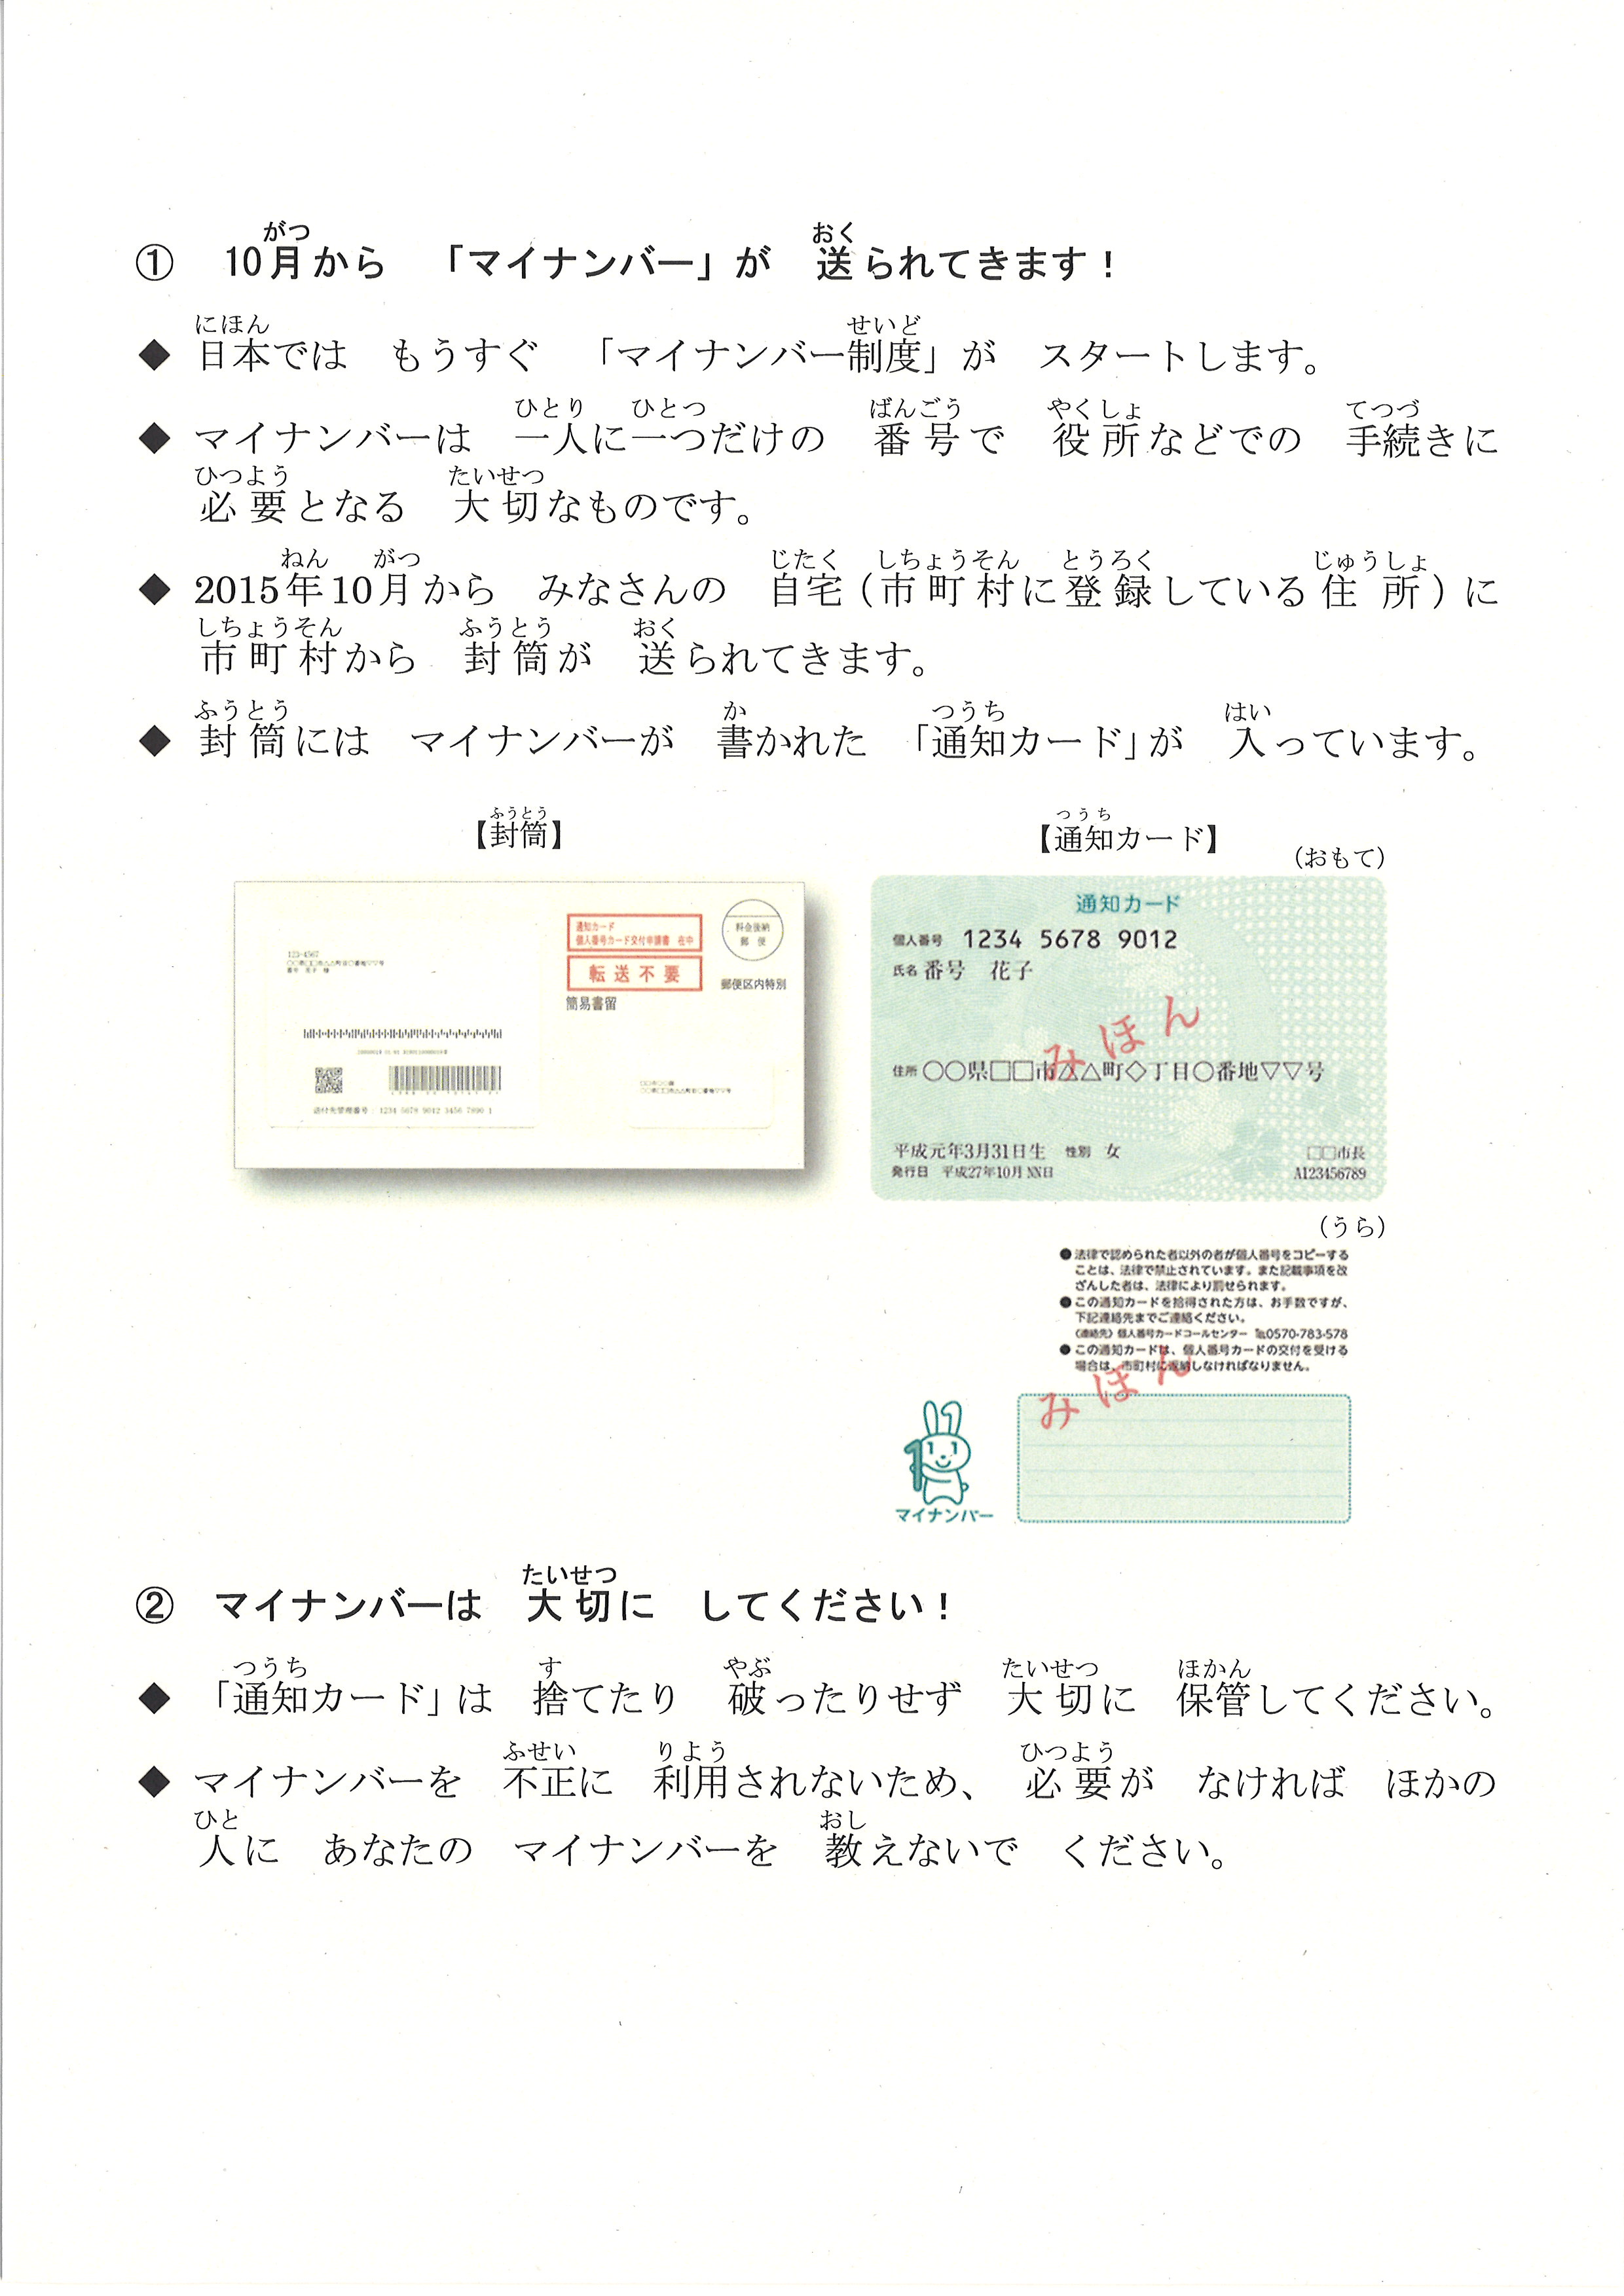 ① 10月から 「マイナンバー」が 送られてきます！
がつ おく
◆ 日本では もうすぐ 「マイナンバー制度」が スタートします。
にほん せいど
◆ マイナンバーは 一人に一つだけの 番号で 役所などでの 手続きに
ひとり ひとつ ばんごう やくしょ てつづ
必要となる 大切なものです。
ひつよう たいせつ
◆ 2015年10月から みなさんの 自宅（市町村に登録している住所）に
ねん がつ じたく しちょうそん とうろく じゅうしょ
市町村から 封筒が 送られてきます。
しちょうそん ふうとう おく
◆ 封筒には マイナンバーが 書かれた 「通知カード」が 入っています。
ふうとう か つうち はい
【封筒】
ふうとう
123-4567
通知カード
個人番号カード交付申請書 在中
転送不要
簡易書留
料金後納
郵便
郵便区内特別
送付先管理番号：1234 5678 9012 3456 7890 1
【通知カード】
つうち
（おもて）
通知カード
個人番号 1234 5678 9012
氏名 番号 花子
みほん
住所 ○○県□□市△△町◇丁目○番地▽▽号
平成元年3月31日生 性別 女
□□市長
発行日 平成27年10月NN日
A123456789
（うら）
●法律で認められた者以外の者が個人番号をコピーする
ことは、法律で禁止されています。また記載事項を改
ざんした者は、法律により罰せられます。
●この通知カードを拾得された方は、お手数ですが、
下記連絡先までご連絡ください。
〈連絡先〉個人番号カードコールセンター ℡0570-783-578
●この通知カードは、個人番号カードの交付を受ける
場合は、市町村に返納しなければなりません。
みほん
マイナンバー
② マイナンバーは 大切に してください！
たいせつ
◆ 「通知カード」は 捨てたり 破ったりせず 大切に 保管してください。
つうち す やぶ たいせつ ほかん
◆ マイナンバーを 不正に 利用されないため、 必要が なければ ほかの
ふせい りよう ひつよう
人に あなたの マイナンバーを 教えないで ください。
ひと おし